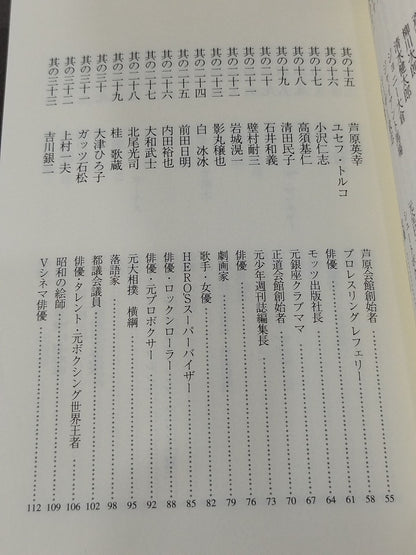 其の十五 芦原英幸 芦原会館創始者 55
其の十六 ユセフ・トルコ プロレスリング レフェリー 58
其の十七 小沢仁志 俳優 61
其の十八 高須基仁 モッツ出版社長 64
其の十九 清田民子 元銀座クラブママ 67
其の二十 石井和義 正道会館創始者 70
其の二十一 壁村耐三 元少年週刊誌編集長 73
其の二十二 岩城滉一 俳優 76
其の二十三 影丸穣也 劇画家 79
其の二十四 白 冰冰 歌手・女優 82
其の二十五 前田日明 HERO'Sスーパーバイザー 85
其の二十六 内田裕也 俳優・ロックンローラー 88
其の二十七 大和武士 俳優・元プロボクサー 92
其の二十八 北尾光司 元大相撲 横綱 95
其の二十九 桂 歌蔵 落語家 98
其の三十 大津ひろ子 都議会議員 102
其の三十一 ガッツ石松 俳優・タレント・元ボクシング世界王者 106
其の三十二 上村一夫 昭和の絵師 109
其の三十三 吉川銀二 Vシネマ俳優 112